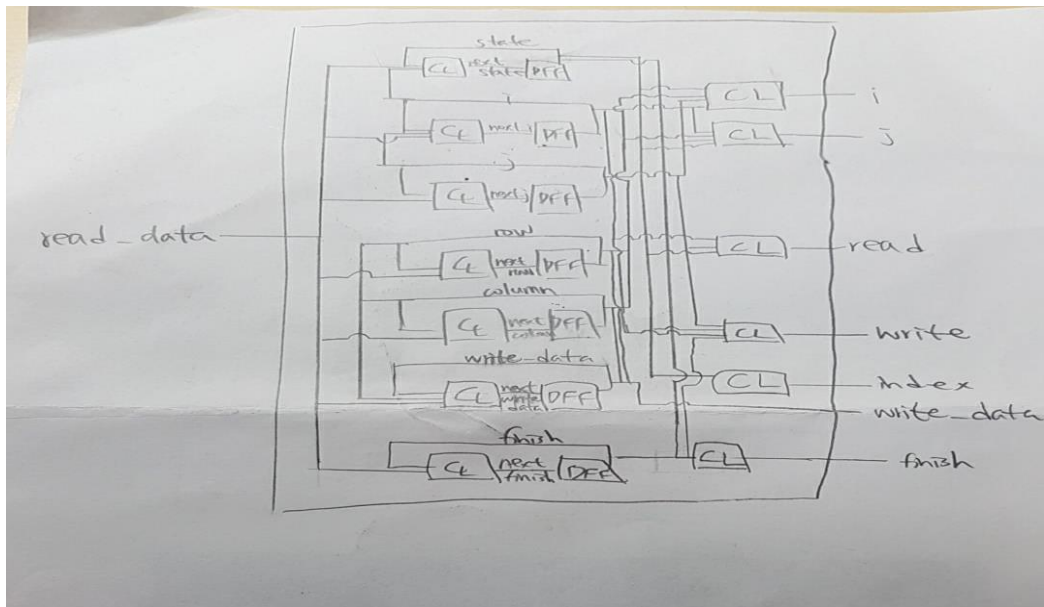 state
CL next state DFF
i
CL next i DFF
j
CL next j DFF
row
CL next row DFF
column
CL next column DFF
write_data
CL next write data DFF
finish
CL next finish DFF
read_data
CL i
CL j
CL read
CL write
CL index
write_data
CL finish